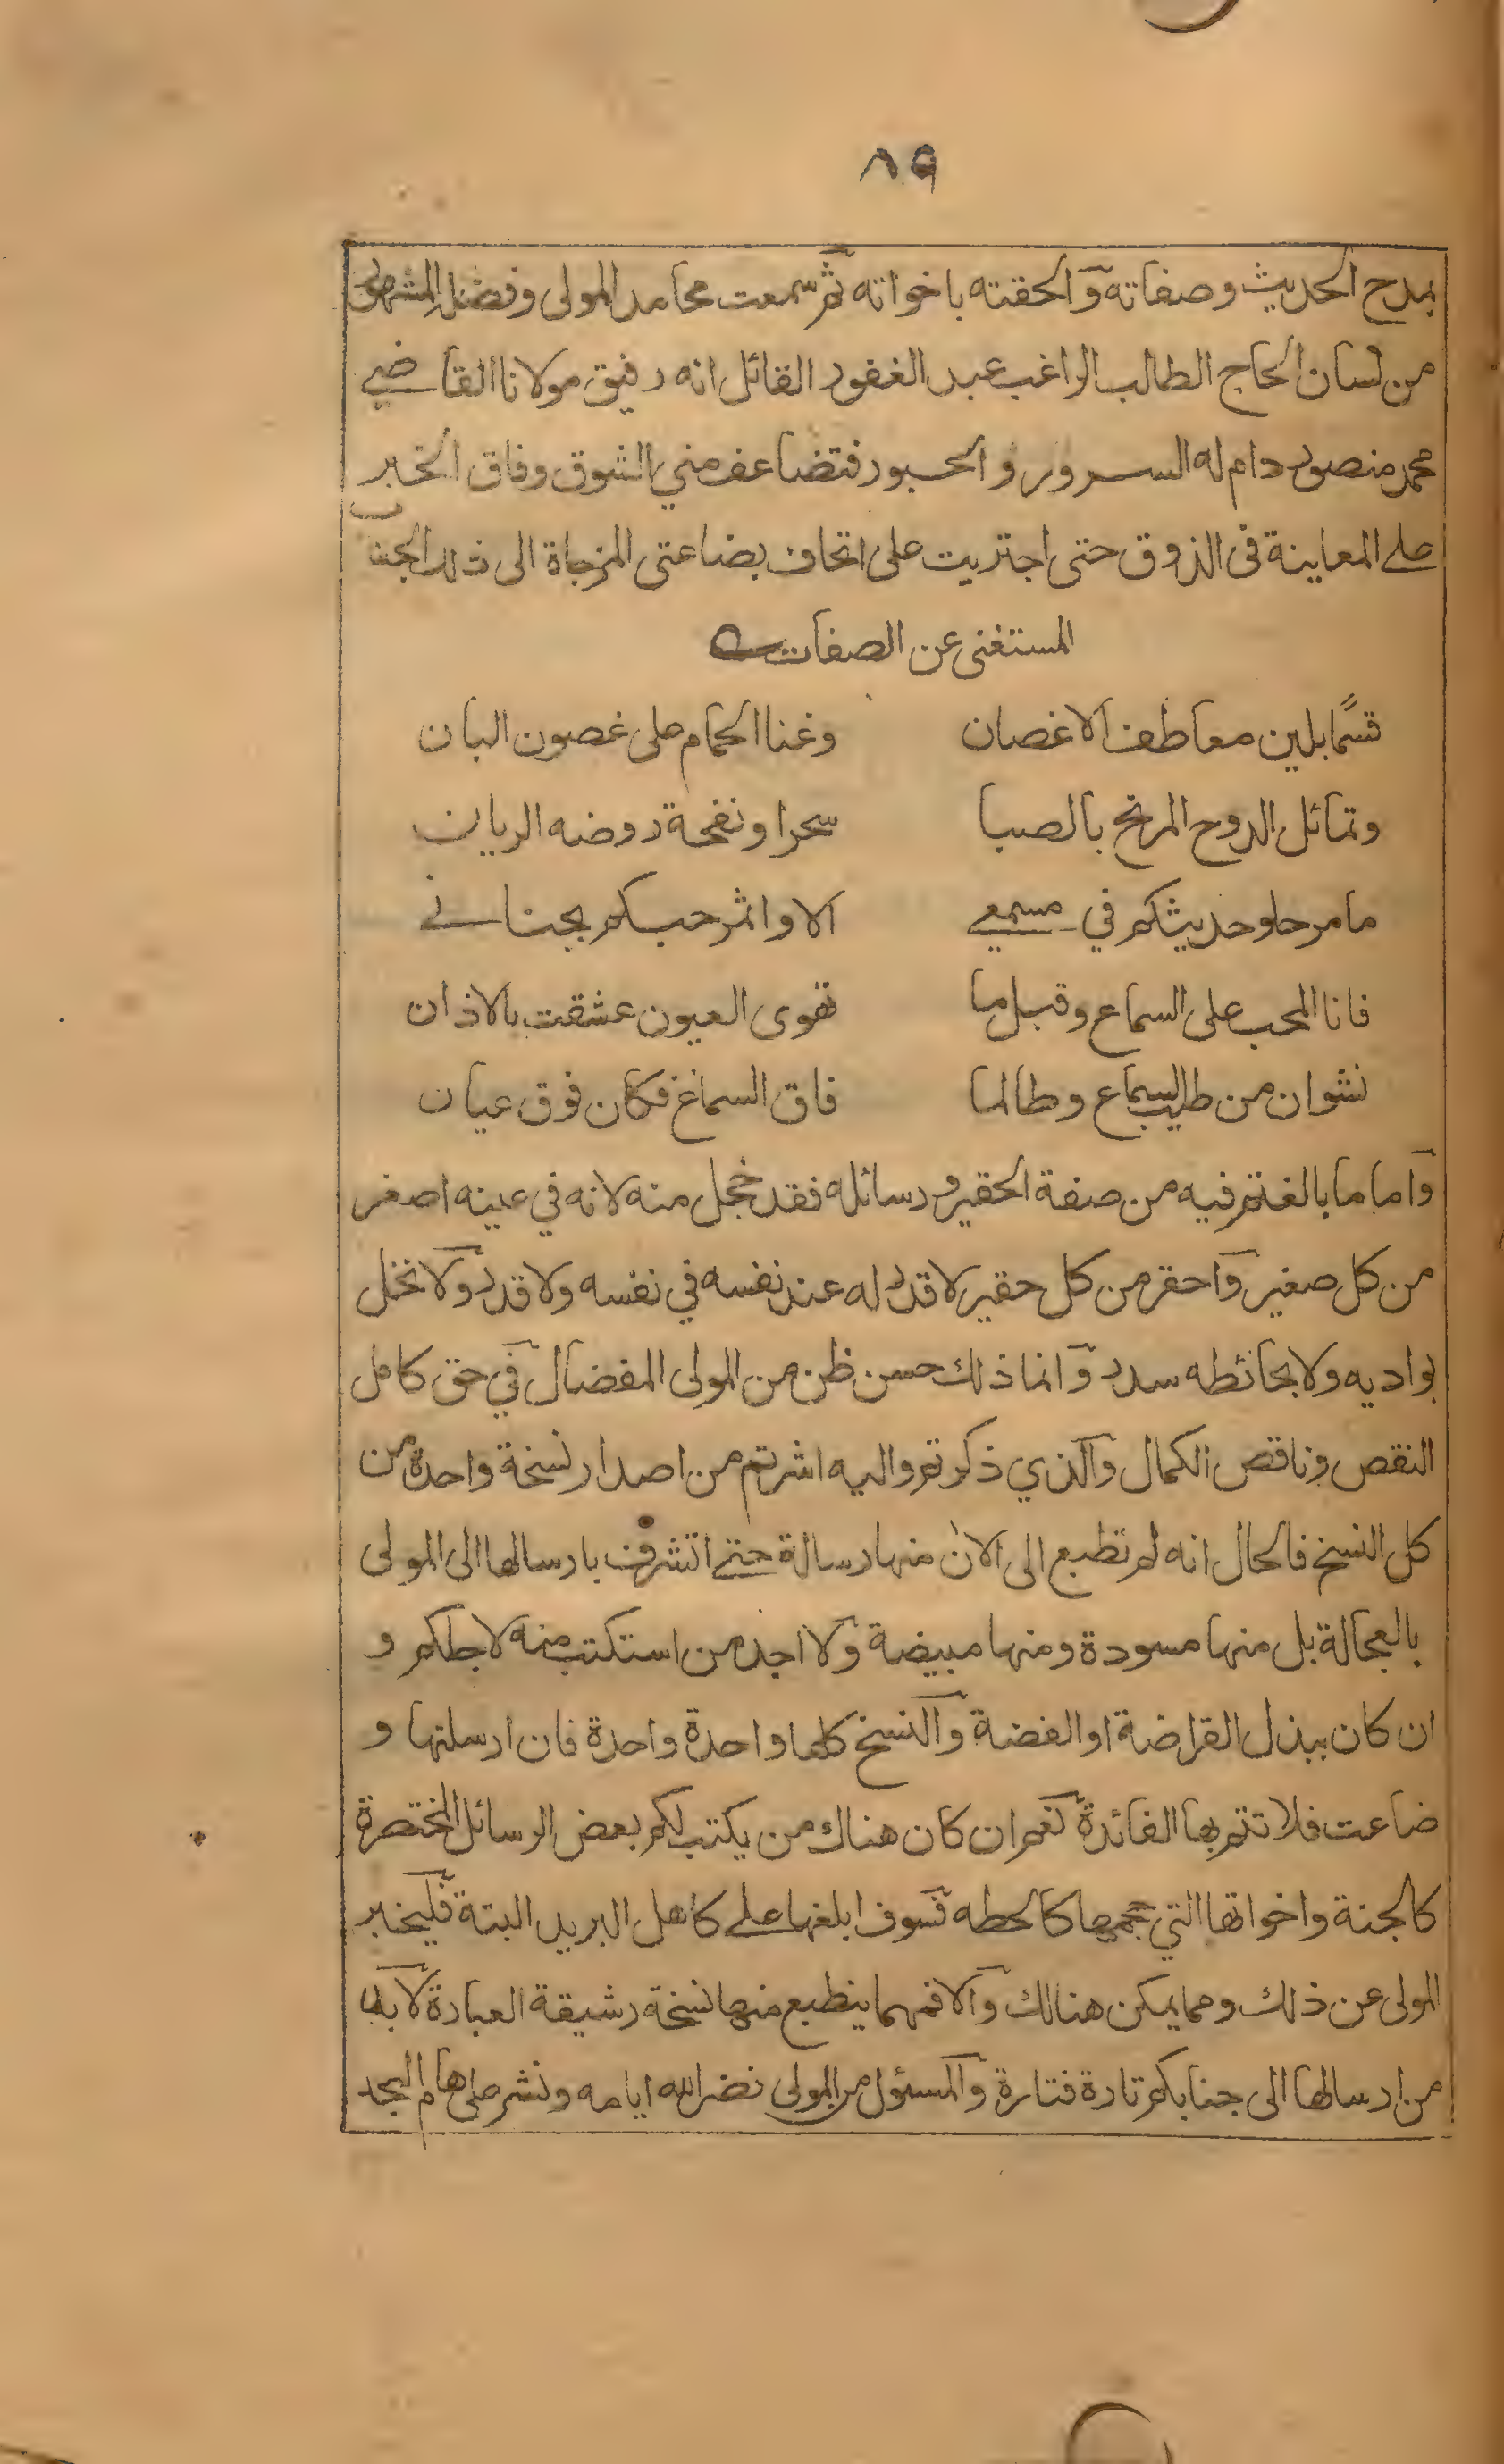 ٨٩
بمدح الحديث وصفاته وآلحقته باخواته ثم سمعت محامد المولى وفضل المشهور
من لسان الحاج الطالب الراغب عبد الغفور القائل انه رفيق مولانا القاضي
محمد منصور دام له السرور والحبور فتضاعف مني الشوق وفاق الخبر
على المعاينة في الذوق حتى اجتريت على اتحاف بضاعتي المزجاة الى ذلك الجناب
المستغنى عن الصفات
قسمًا بلين معاطف الاغصان وغنا الحمام على غصون البان
وتمائل الدوح المرنح بالصبا سحرا ونفحة روضه الريان
ما مر حلو حديثكم في مسمعي الا واثمر حبكم بجناني
فانا المحب على السماع وقبل ما تهوى العيون عشقت بالاذان
نشوان من طيب السماع وطالما فاق السماع فكان فوق عيان
وآما ما بالغتم فيه من صفة الحقير ورسائله فقد خجل منه لانه في عينه اصغر
من كل صغير وآحقر من كل حقير لا قدر له عند نفسه في نفسه ولا قدر ولا نخل
بواديه ولا بحائطه سدر وآنما ذلك حسن ظن من المولى المفضال في حق كامل
النقص وناقص الكمال وآلذي ذكرتم واليه اشرتم من اصدار نسخة واحدة من
كل النسخ فالحال انه لم تطبع الى الان منها رسالة حتى اتشرف بارسالها الى المولى
بالعجالة بل منها مسودة ومنها مبيضة ولا اجد من استكتب منه لاجلكم و
ان كان ببذل القراضة او الفضة وآلنسخ كلها واحدة واحدة فان ارسلتها و
ضاعت فلا تتم بها الفائدة نعم ان كان هناك من يكتب لكم بعض الرسائل المختصرة
كالجنة واخواتها التي حجمها كالحطه فسوف ابلغها على كاهل البريد البتة فليخبر
المولى عن ذلك ومما يمكن هنالك وآلا فمهما ينطبع منها نسخة رشيقة العبارة لا بد
من ارسالها الى جنابكم تارة فتارة وآلمسئول من المولى نضر الله ايامه ونشر على هام المجد